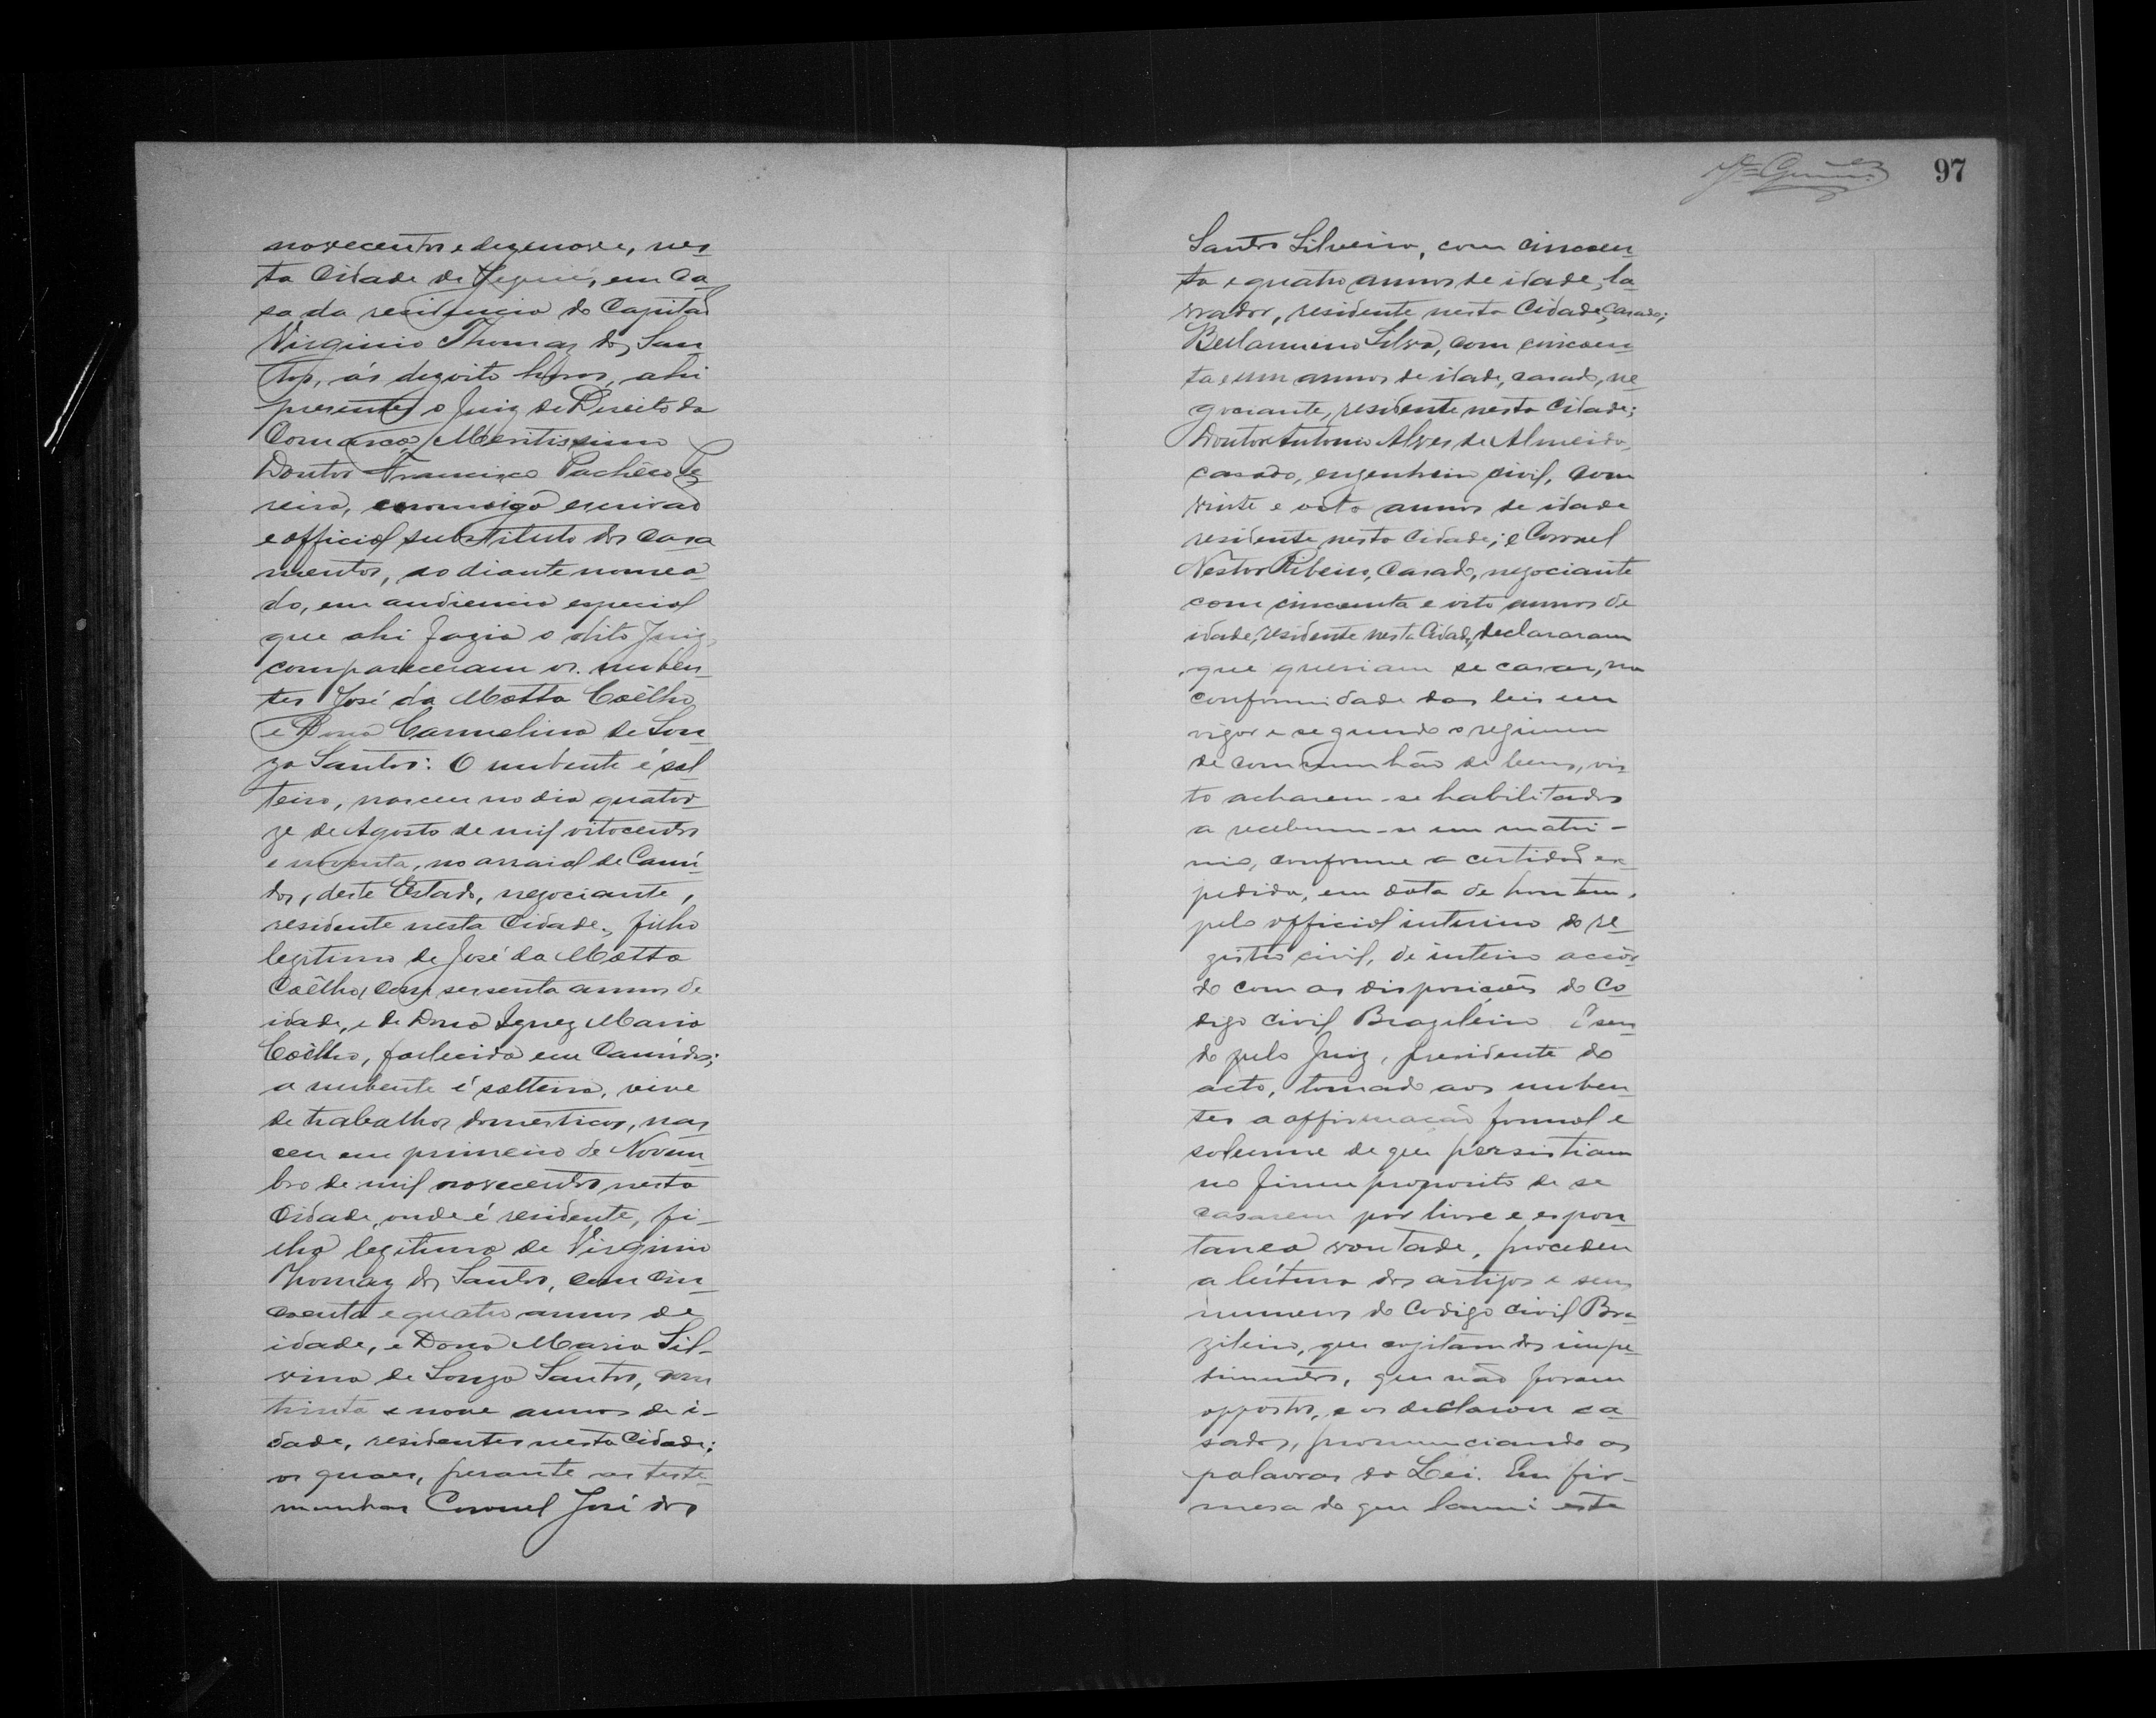 novecentos e dezenove, nes-
ta Cidade de Jequié, em Ca-
sa da residencia do Capitão
Virginio Thomaz dos San-
tos, ás dezoito horas, ahi
presentes o Juiz de Direito da
Comarca, Meritissimo
Doutor Francisco Pachêco
reira, commigo escrivão
e official substituto dos casa
mentos, ao diante nomea-
do, em audiencia especial
que ahi fazia o dito Juiz,
compareceram os nuben-
tes José da Motta Coêlho
e Dona Carmelina de Sou-
za Santos: O nubente é sol-
teiro, nasceu no dia quator-
ze de Agosto de mil oitocentos
e noventa, no arraial de
deste Estado, negociante,
residente nesta Cidade, filho
legitimo de José da Motta
Coêlho, com sessenta annos de
idade, e de Dona Ignez Maria
Coêlho, fallecida em
a nubente é solteira, vive
de trabalhos domesticos, nas-
ceu em primeiro de Novem-
bro de mil novecentos nesta
Cidade, onde é residente, fi-
lha legitima de Virginio
Thomaz dos Santos, com cin-
coenta e quatro annos de
idade, e Dona Maria Sil-
vina de Souza Santos, com
trinta e nove annos de i-
dade, residentes nesta Cidade;
os quaes, perante as teste-
munhas Coronel José dos
97
Santos Silveira, com cincoen-
ta e quatro annos de idade, la-
vrador, residente nesta Cidade, casado;
Bellarmino Silva, com cincoen-
ta e um annos de idade, casado, ne-
gociante, residente nesta Cidade;
Doutor Antonio Alves de Almeida,
casado, engenheiro civil, com
vinte e oito annos de idade
residente nesta Cidade; e Coronel
Nestor Ribeiro, casado, negociante
com cincoenta e oito annos de
idade, residente nesta Cidade, declararam
que queriam se casar, na
conformidade das leis em
vigor e segundo o regimen
de communhão de bens, vis-
to acharem-se habilitados
a receberem-se em matri-
nio, conforme a certidão ex-
pedida, em data de hontem,
pelo official interino do re-
gistro civil, de inteiro accôr-
do com as disposições do Co-
digo Civil Brazileiro E sen-
do pelo Juiz, presidente do
acto, tomado aos nuben-
tes a affirmação formal e
solemne de que persistiam
no firme proposito de se
casarem por livre e espon-
tanea vontade, procedeu
a leitura dos artigos e seus
numeros do Codigo Civil Bra-
zileiro, que cogitam dos impe-
dimentos, que não foram
oppostos, e os declarou ca-
sados, pronunciando as
palavras da Lei. Em fir-
mesa do que lavrei este